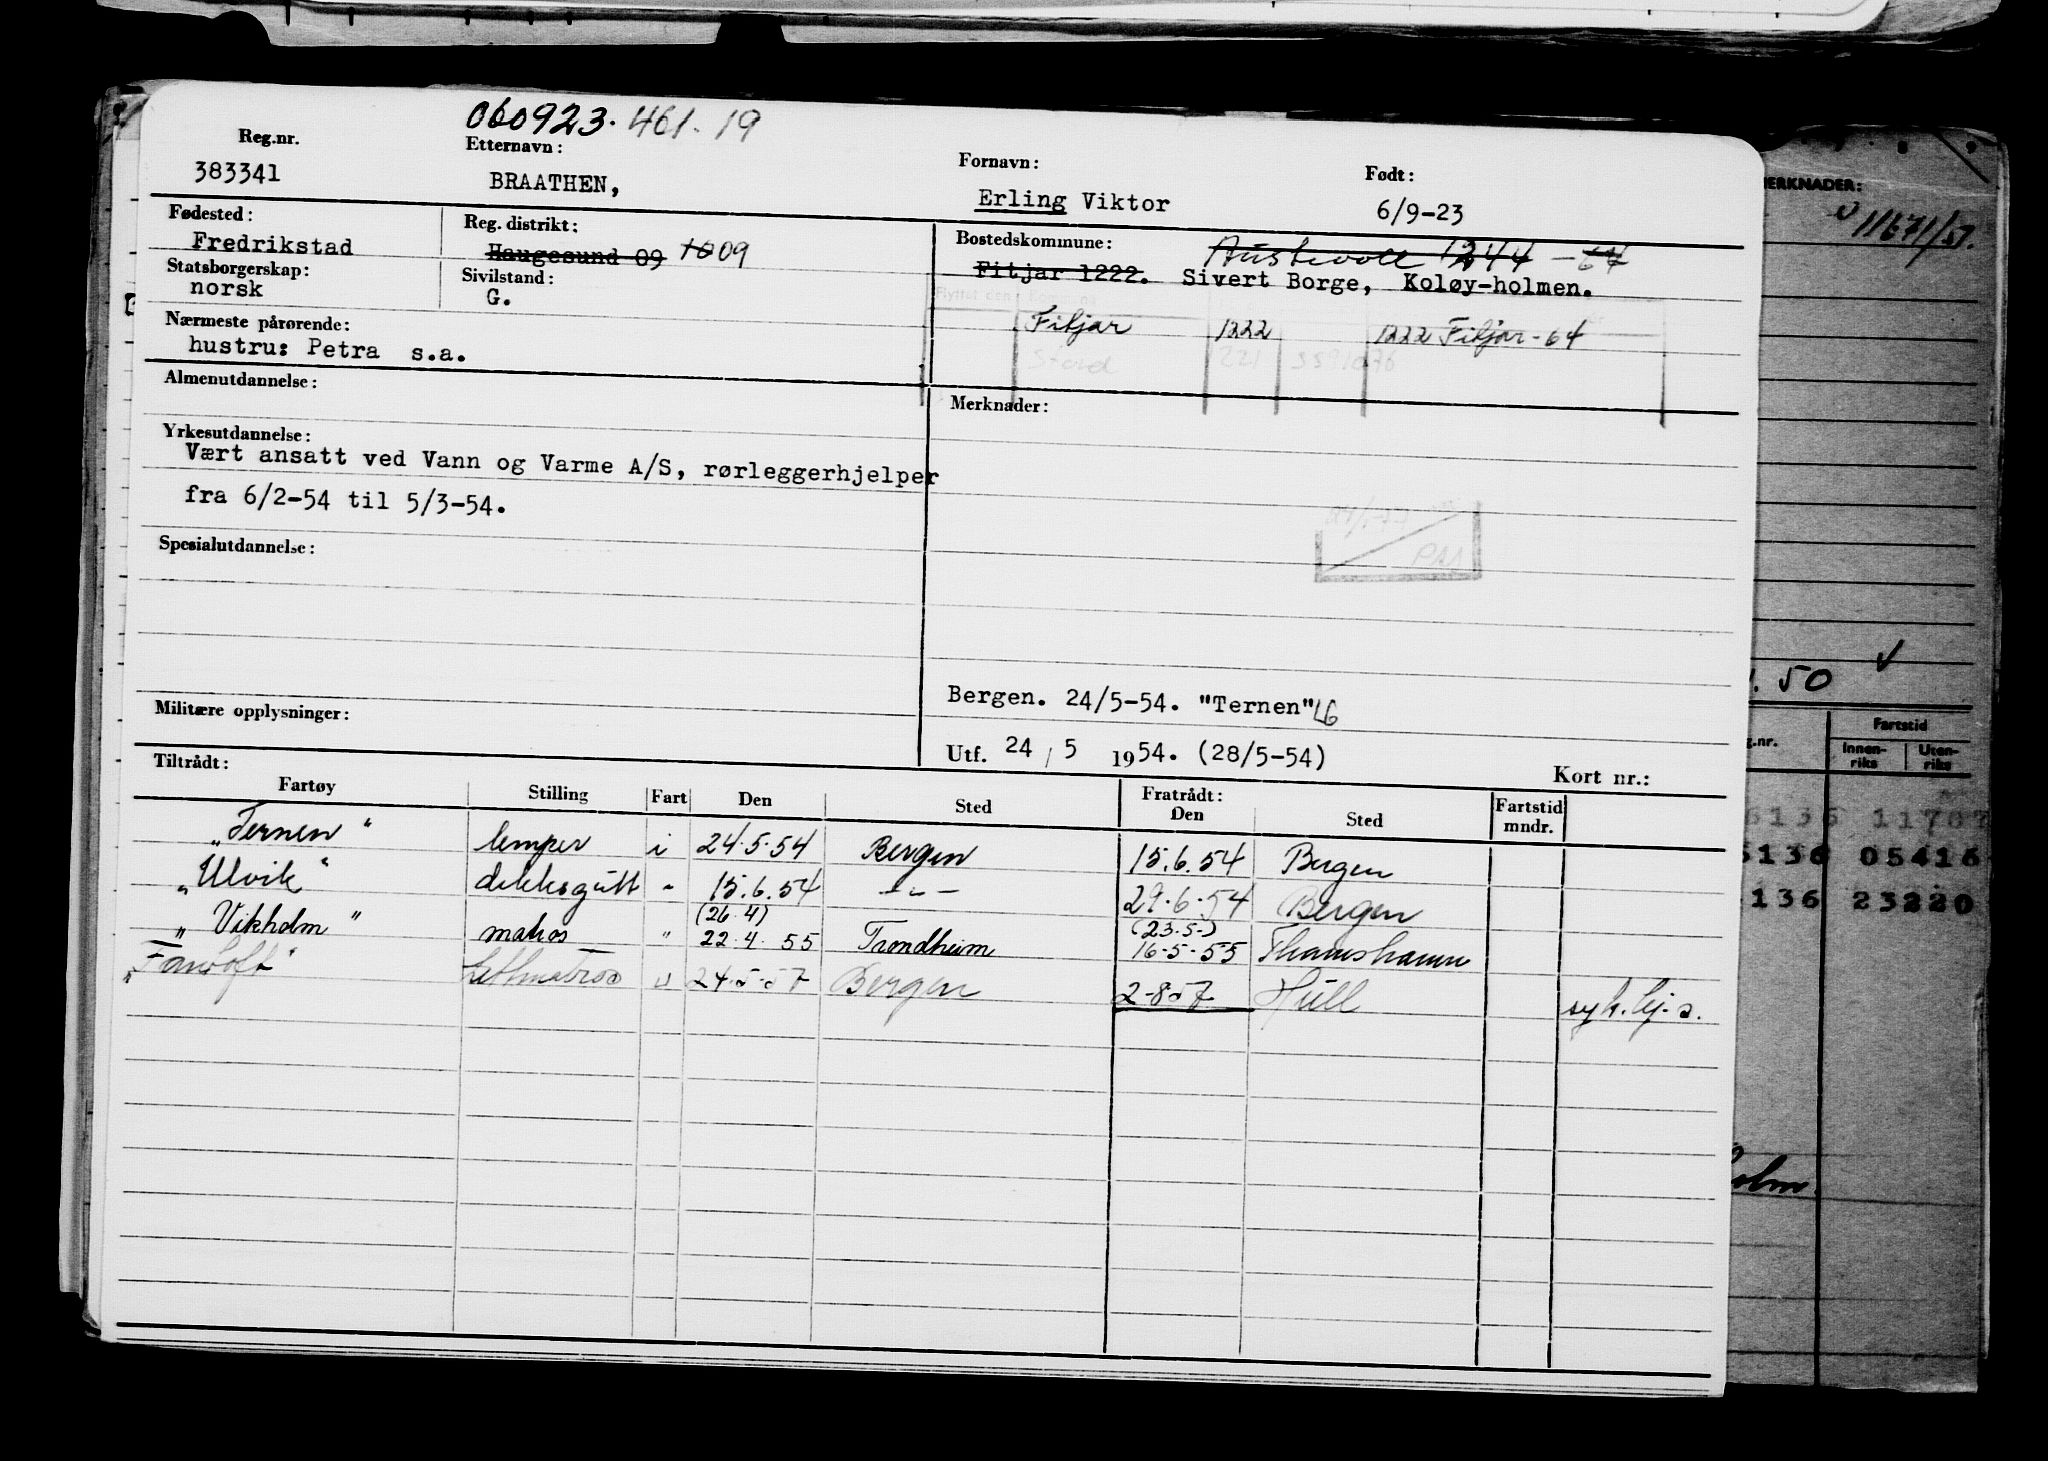 060923. 461. 19
Reg.nr. Etternavn: Fornavn: Født:
383341 BRAATHEN, Erling Viktor 6/9-23
Fødested: Reg. distrikt: Bostedskommune: Austevoll 1244 - 64
Fredrikstad Haugesund 09 1009 Fitjar 1222. Sivert Borge, Koløy-holmen.
Statsborgerskap: Sivilstand:
norsk G.
Flyttet den Kommune
Nærmeste pårørende: Fitjar 1222 1222 Fitjar - 64
hustru: Petra s.a. Stord 221
Almenutdannelse: Merknader:
Yrkesutdannelse:
Vært ansatt ved Vann og Varme A/S, rørleggerhjelper
fra 6/2-54 til 5/3-54.
Spesialutdannelse:
Bergen. 24/5-54. "Ternen"
Militære opplysninger:
Utf. 24 / 5 1954. (28/5-54)
Kort nr.:
Tiltrådt: Fratrådt:
Fartøy Stilling Fart Den Sted Den Sted Fartstid mndr.
"Ternen" lemper i 24.5.54 Bergen 15.6.54 Bergen
"Ulvik" dekksgutt " 15.6.54 - " - 29.6.54 Bergen
(26.4) (23.5.)
"Vikholm" matros " 22.4.55 Trondheim 16-5-55 Thamshamn
Lettmatros u 24.5.57 Bergen 2-8-57 Hull
MERKNADER:
11671/51.
50
Fartstid
Innen-riks Uten-riks
136 05416
136 23220